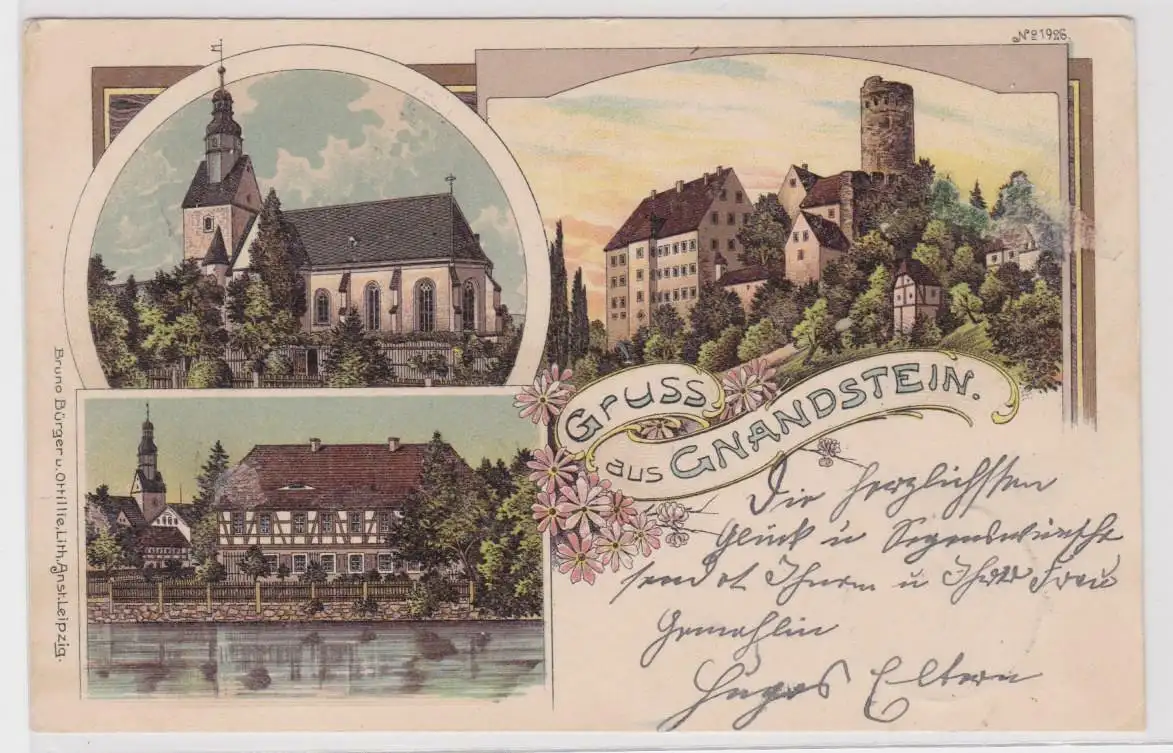 No 1926.
GRUSS
aus GNANDSTEIN.
Die herzlichsten
Glück u Segenswünsche
sendet Ihnen u Ihrer Frau
Gemahlin
Eltern
Bruno Bürger u. Ottillie, Lith. Anst. Leipzig.